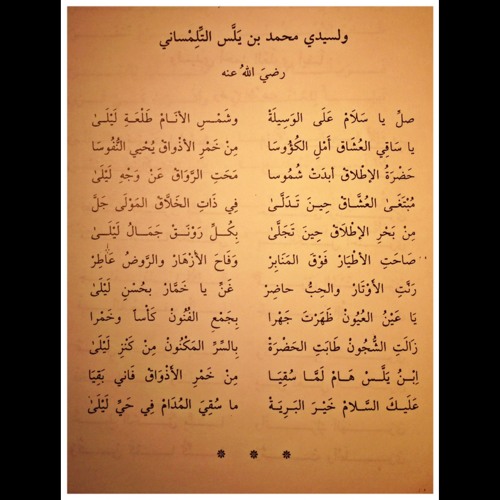 ولسيدي محمد بن يَلَّس التِّلِمْساني
رضيَ اللهُ عنه
صلِّ يا سَلَامْ عَلَى الوَسِيلَةْ وشَمْـسِ الأنَـامْ طَلْعَـةِ لَيْلَـىٰ
يا سَاقِي العُشَّاقْ أَمْلِ الكُؤُوسَا مِنْ خَمْرِ الأَذْواقْ يُحْيِي النُّفُوسَا
حَضْرَةُ الإِطْلَاقْ أَبدَتْ شُمُوسا مَحَتِ الرَّوَاقْ عَنْ وَجْهِ لَيْلَىٰ
مُبْتَغَى العُشَّاقْ حِينَ تَدَلَّىٰ فِي ذَاتِ الخَلَّاقْ المَوْلَى جَلَّ
مِنْ بَحْرِ الإِطْلَاقْ حِينَ تَجَلَّىٰ بِكُلِّ رَوْنَـقْ جَمَـالُ لَيْلَـىٰ
صَاحَتِ الأَطْيَارْ فَوْقَ المَنَابِرْ وَفَاحَ الأَزْهَارْ والرَّوضُ عَاطِرْ
رَنَّتِ الأَوْتَارْ والحِبُّ حاضِرْ غَنِّ يا خَمَّارْ بِحُسْنِ لَيْلَىٰ
يَا عَيْنَ العُيُونْ ظَهَرْتَ جَهْرا بِجَمْعِ الفُنُونْ كَأْساً وخَمْرا
زَالَتِ الشُّجُونْ طَابَتِ الحَضْرَةْ بِالسِّرِّ المَكْنُونْ مِنْ كَنْزِ لَيْلَىٰ
اِبْنُ يَلَّسْ هَامْ لَمَّا سُقِيَا مِنْ خَمْرِ الأَذْوَاقْ فَاني بَقِيَا
عَلَيكَ السَّلَامْ خَيْرَ البَرِيَةْ ما سُقِيَ المُدَامْ فِي حَيِّ لَيْلَىٰ
* * *